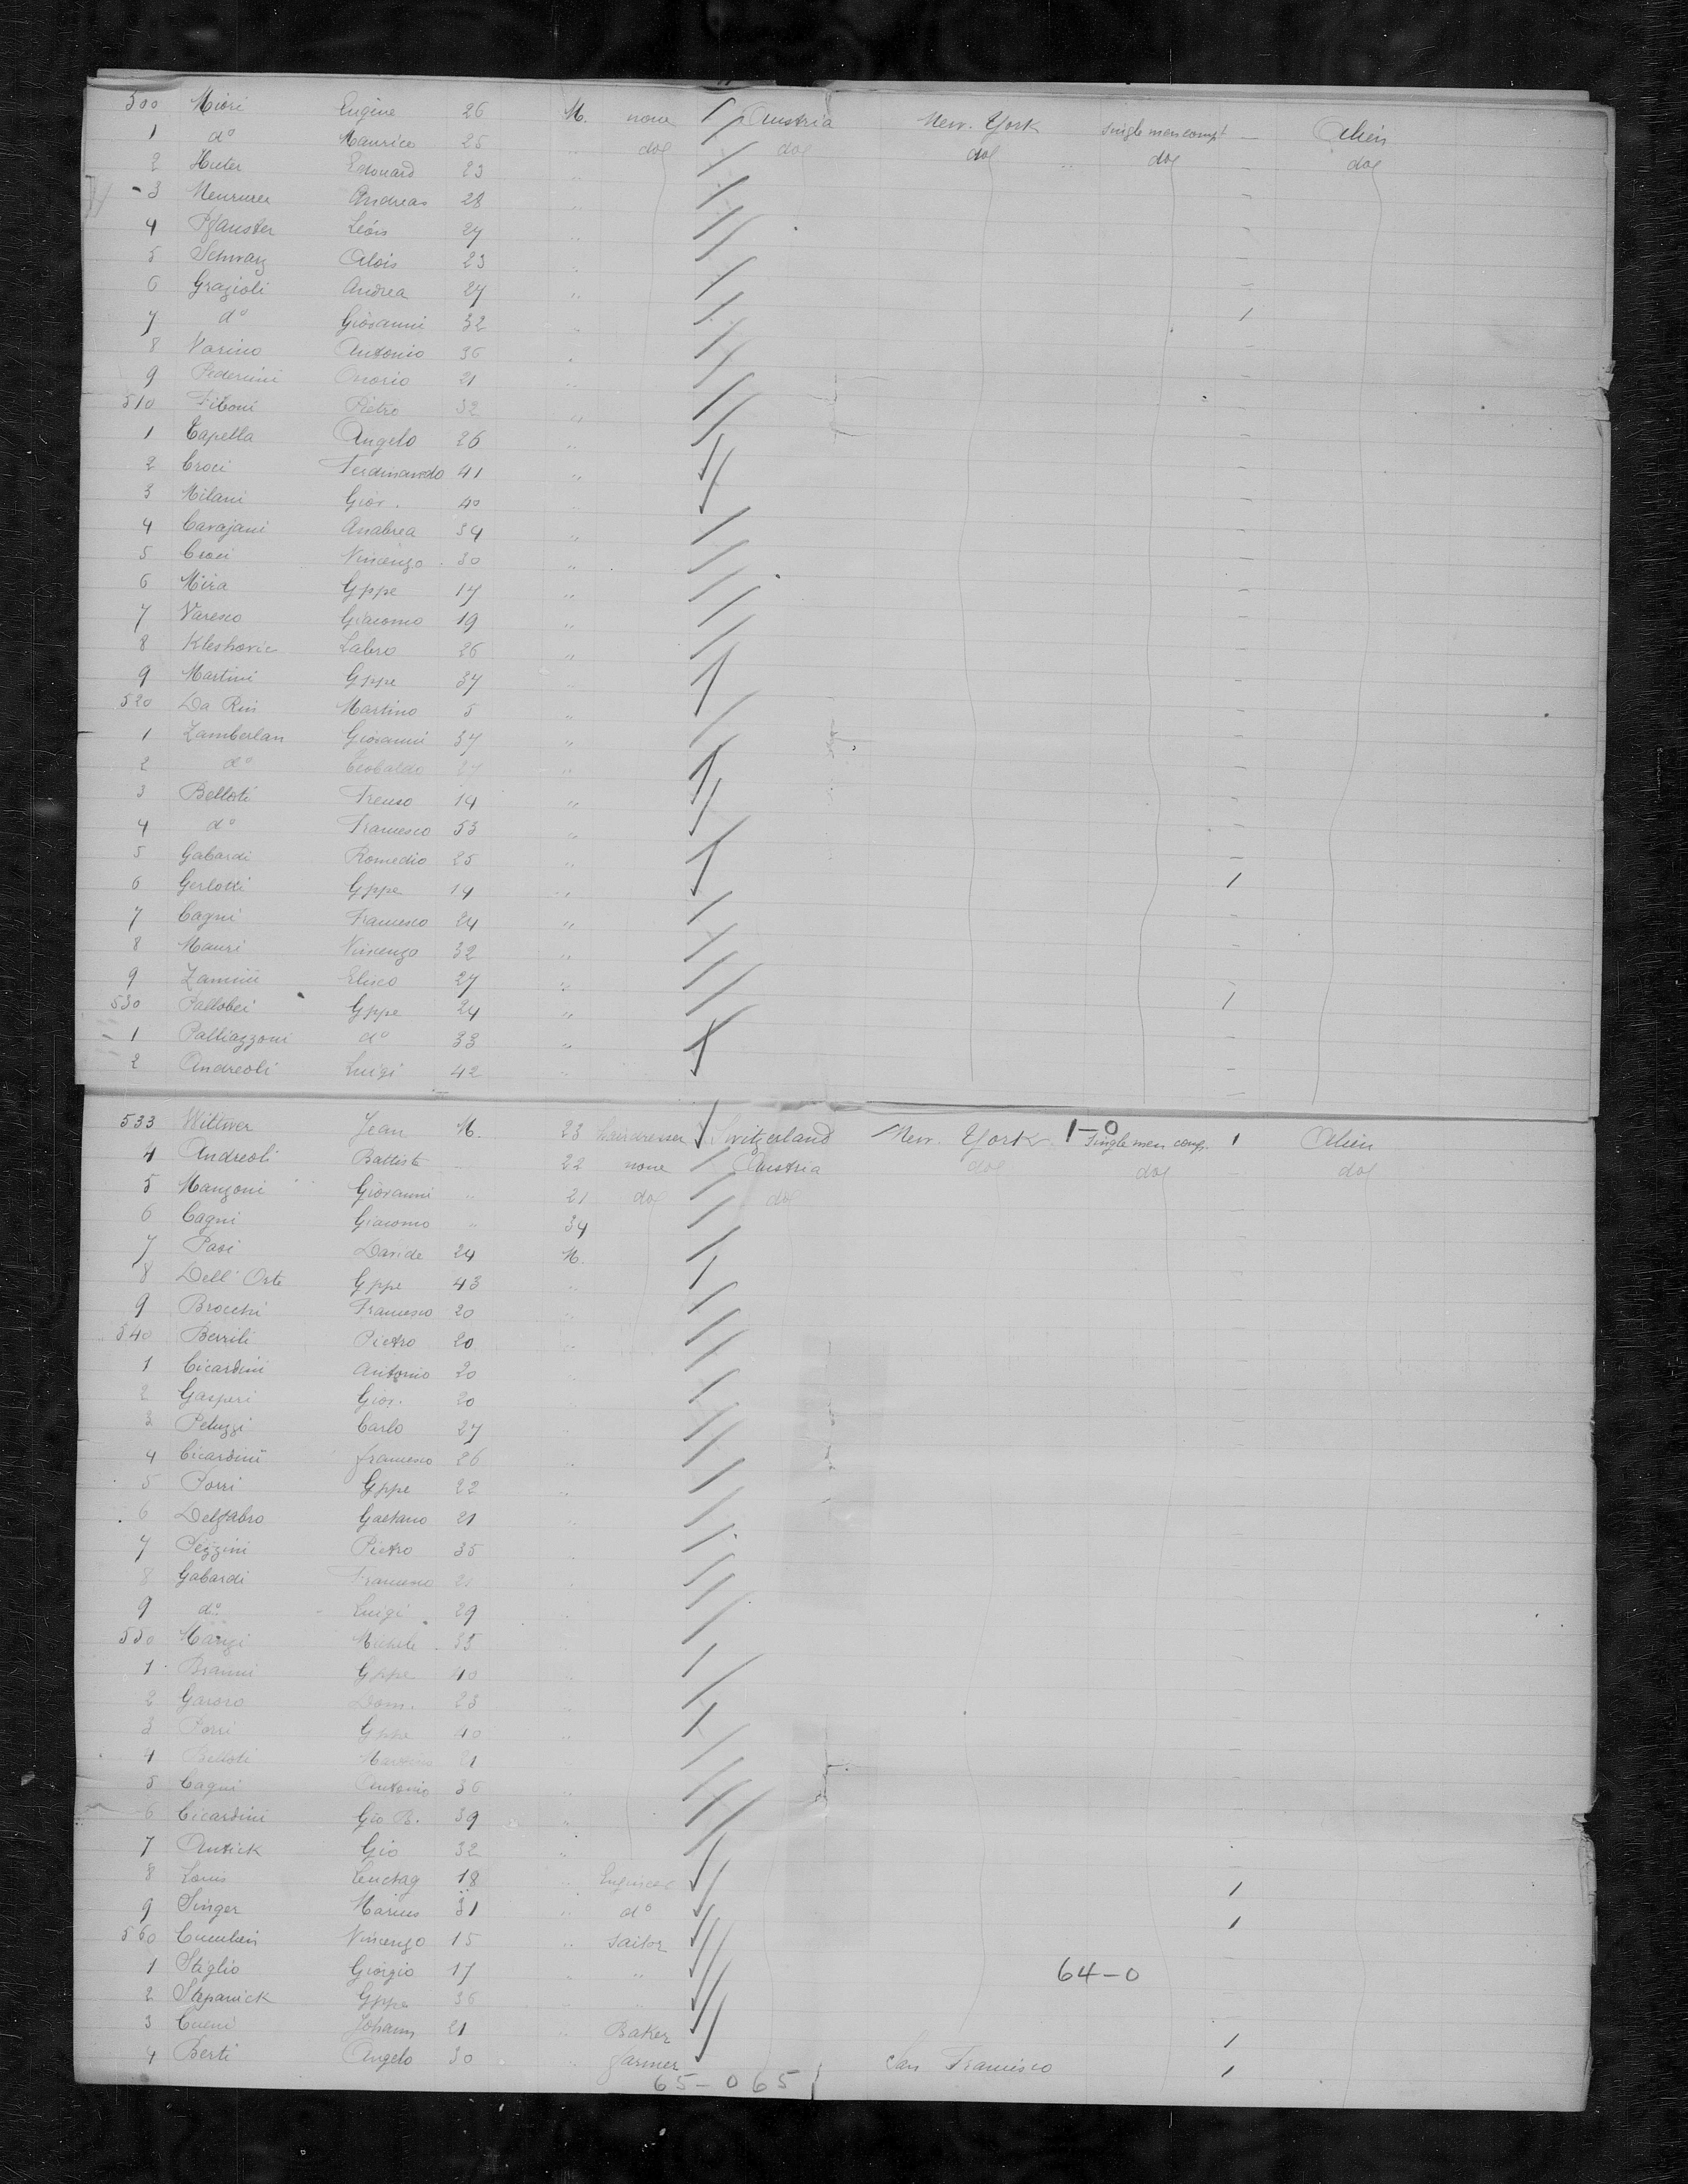 500 Miori Eugène 26 M. none Austria New. York single men compt — Alien
1 do Maurice 25 " do do do " do do
2 Huter Edouard 23 " —
3 Andreas 28 " —
4 Pfauster Léon 27 " —
5 Schwarz Alois 23 " —
6 Grazioli Andrea 27 " —
7 do Giovanni 32 " 1
8 Varino Antonio 36 " —
9 Pedernini Onorio 21 " —
510 Fiboni Pietro 32 "
1 Capella Angelo 26 " —
2 Croci Ferdinando 41 " —
3 Milani Giov. 40 " —
4 Cavajani Anabrea 34 " —
5 Croci Vincenzo 30 " —
6 Mira Gppe 17 " —
7 Varesco Giacomo 19 " —
8 Kleshovic Labro 26 " —
9 Martini Gppe 37 " —
520 Da Rin Martino 5 " —
1 Zamberlan Giovanni 37 " —
2 do Teobaldo 27 " —
3 Belloti 14 " —
4 do Francesco 53 " —
5 Gabardi Romedio 25 " —
6 Gerlotti Gppe 14 " 1
7 Cagni Francesco 24 " —
8 Mauri Vincenzo 32 " —
9 Zamini Eliseo 27 " —
530 Pallobei Gppe 24 " 1
1 Palliazzoni do 33 " —
2 Andreoli Luigi 42 " —
533 Wittwer Jean M. 23 hairdresser Switzerland New. York 1-0 Single men comp. 1 Alien
4 Andreoli Battista 22 none Austria do do do
5 Manzoni Giovanni " 21 do do
6 Cagni Giacomo " 34
7 Pasi Davide 24 M.
8 Dell' Oste Gppe 43 "
9 Brocchi Francesco 20 "
540 Berrili Pietro 20 "
1 Cicardini Antonio 20 "
2 Gasperi Giov. 20 "
3 Peluzzi Carlo 27 "
4 Cicardini francesco 26 "
5 Porri Gppe 22 "
6 Delzabro Gaetano 21
7 Pezzini Pietro 35 "
8 Gabardi Francesco 21 "
9 do Luigi 29 "
550 Michele 35
1 Branni Gppe 40 "
2 Gavoro Dom. 23 "
3 Porri Gppe 40 "
4 Belloti Martino 21 "
5 Cagni Antonio 36 "
6 Cicardini Gio B. 39 "
7 Antick Gio 32 "
8 Louis Leuctag 18 " Engineer 1
9 Singer Marius 31 " do 1
560 Vincenzo 15 " sailor
1 Stiglio Giorgio 17 " " 64-0
2 Stepanick Gppe 36 " "
3 Cueni Johann 21 " Baker 1
4 Berti Angelo 30 " farmer San Francisco 1
65-0 65